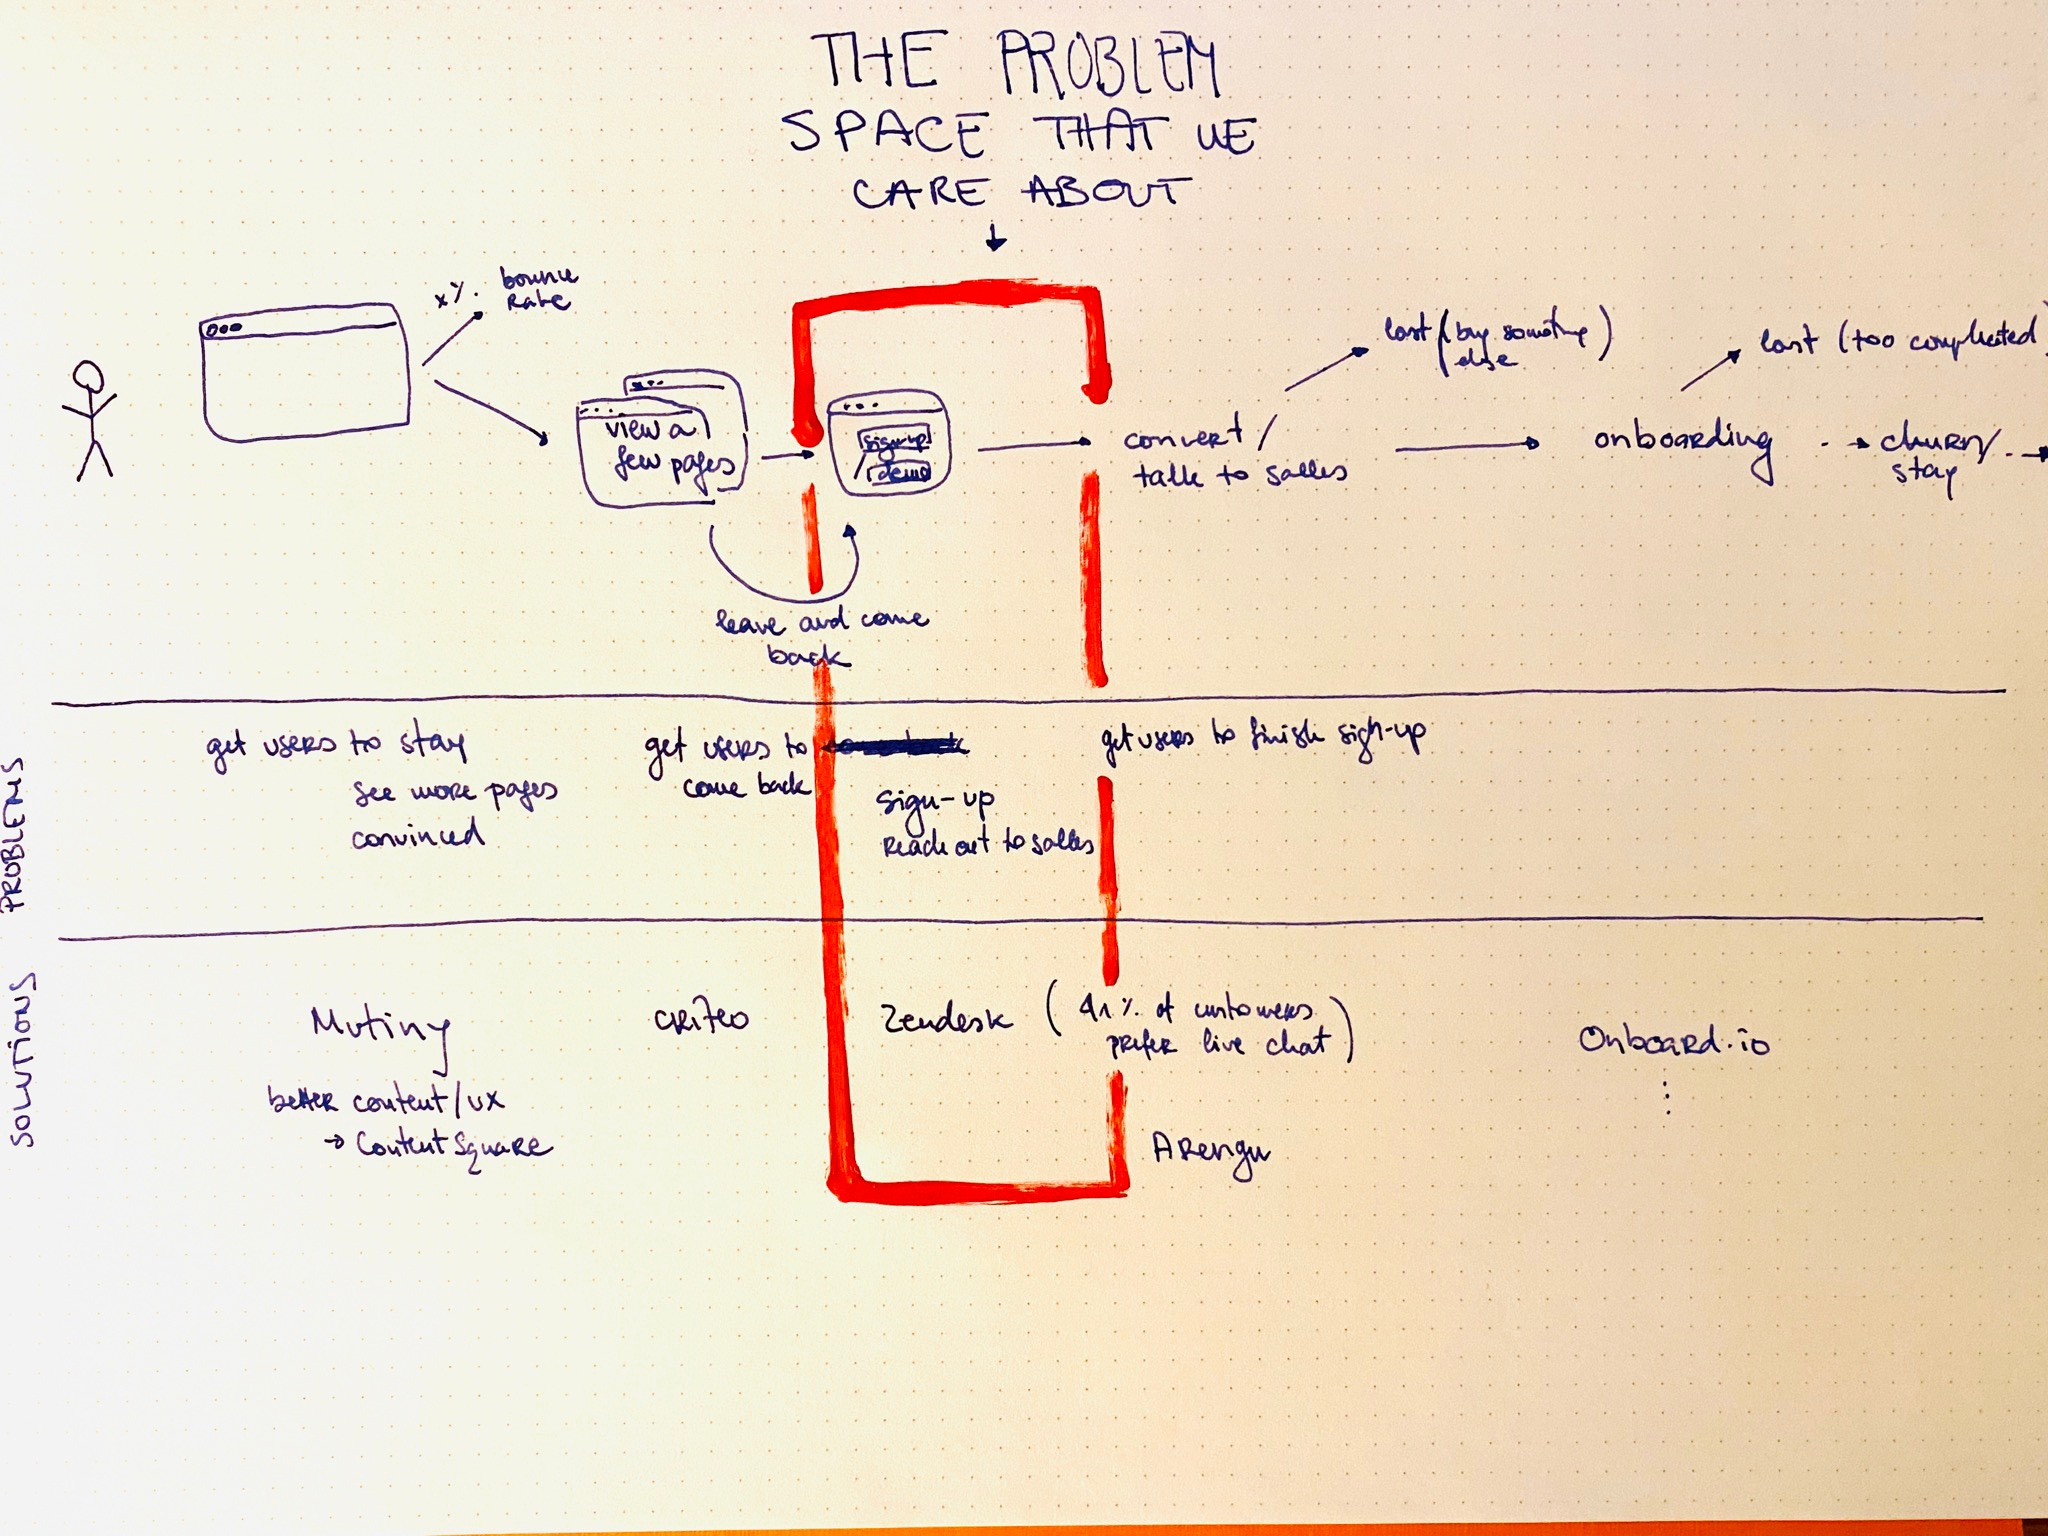 THE PROBLEM
SPACE THAT WE
CARE ABOUT
x%. bounce
rate
view a
few pages
sign-up
/ demo
leave and come
back
convert /
talk to salles
lost (buy something
else)
onboarding
lost (too complicated)
churn/
stay
PROBLEMS
get users to stay
see more pages
convinced
get users to
come back
sign-up
reach out to salles
get users to finish sign-up
SOLUTIONS
Mutiny
better content/UX
→ Content Square
criteo
Zendesk (41% of customers
prefer live chat)
Arengu
Onboard.io